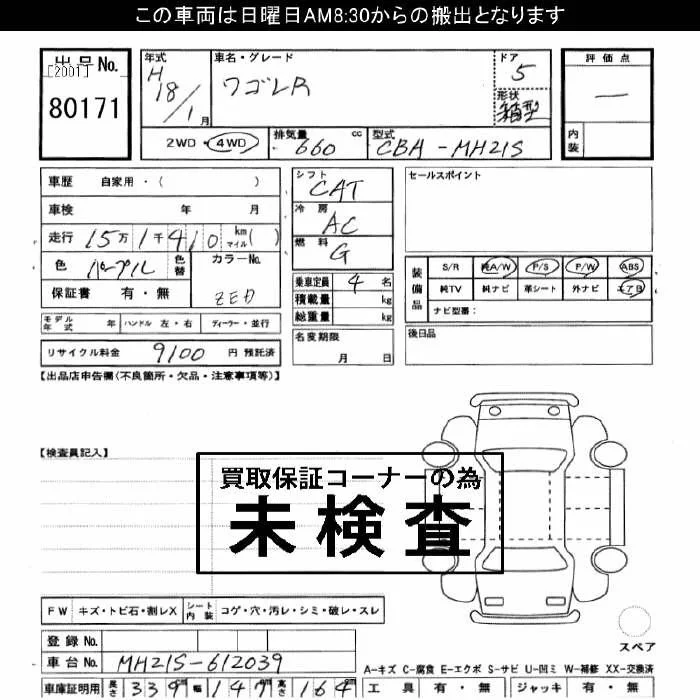 この車両は日曜日AM8:30からの搬出となります
出品No.
[2001]
80171
年式
H
18/1月
車名・グレード
ワゴンR
ドア
5
形状
箱型
評価点
―
内装
2WD・4WD
排気量
660 cc
型式
CBA-MH21S
車歴 自家用・( )
車検 年 月
走行 15万1千410 km マイル ( )
色 パープル 色替
カラーNo.
ZED
保証書 有・無
シフト
CAT
冷房
AC
燃料
G
乗車定員 4 名
積載量 kg
総重量 kg
セールスポイント
装備品
S/R 純A/W P/S P/W ABS
純TV 純ナビ 革シート 外ナビ エアB
ナビ型番:
モデル年式 年 ハンドル 左・右 ディーラー・並行
リサイクル料金 9100 円 預託済
名変期限
月 日
後日品
【出品店申告欄(不良箇所・欠品・注意事項等)】
【検査員記入】
買取保証コーナーの為
未検査
FW キズ・トビ石・割レX
シート内装 コゲ・穴・汚レ・シミ・破レ・スレ
スペア
登録No.
車台No. MH21S-612039
車庫証明用 長さ 339 幅 147 高さ 164
A-キズ C-腐食 E-エクボ S-サビ U-凹ミ W-補修 XX-交換済
工具 有・無 ジャッキ 有・無